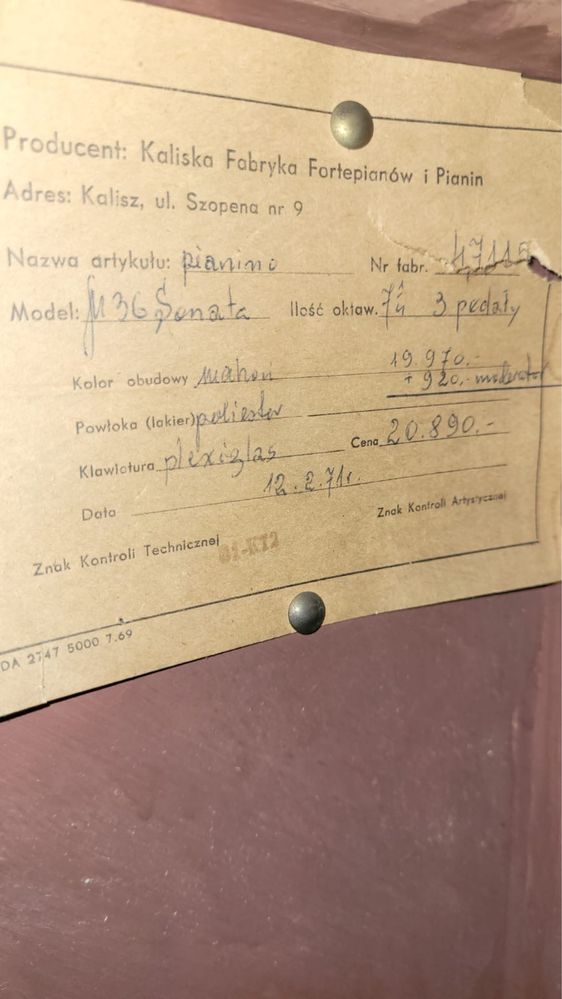 Producent: Kaliska Fabryka Fortepianów i Pianin
Adres: Kalisz, ul. Szopena nr 9
Nazwa artykułu: pianino Nr fabr. 47115
Model: M36 Sonata Ilość oktaw. 7¼ 3 pedały
Kolor obudowy mahoń 19.970.-
+ 920.- moderator
Powłoka (lakier) poliester
Klawiatura plexiglas Cena 20.890.-
Data 12.2.71r.
Znak Kontroli Technicznej Znak Kontroli Artystycznej
DA 2747 5000 7.69